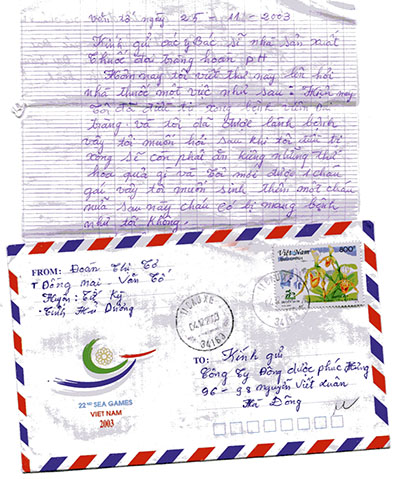 Văn tố ngày 25-11-2003
Kính gửi các y Bác sĩ nhà sản xuất
Thuốc đại tràng hoàn pH
Hôm nay tôi viết thư này lên hỏi
nhà thuốc một việc như sau: Hiện nay
tôi đã điều trị xong bệnh viêm đại
tràng và tôi đã được lành bệnh
vậy tôi muốn hỏi sau khi tôi điều trị
xong sẽ còn phải ăn kiêng những thứ
hoa quả gì và tôi mới được 1 cháu
gái vậy tôi muốn sinh thêm một cháu
nữa sau này cháu có bị mang bệnh
như tôi không.
FROM: Đoàn Thị Tó
T Đồng mai - Văn Tố
Huyện: Tứ Kỳ
Tỉnh Hải Dương
34160
Việt Nam
800đ
TO: Kính gửi
Công Ty Đông dược phúc Hưng
96-98 nguyễn Viết Xuân
Hà Đông
22nd SEA GAMES
VIET NAM
2003